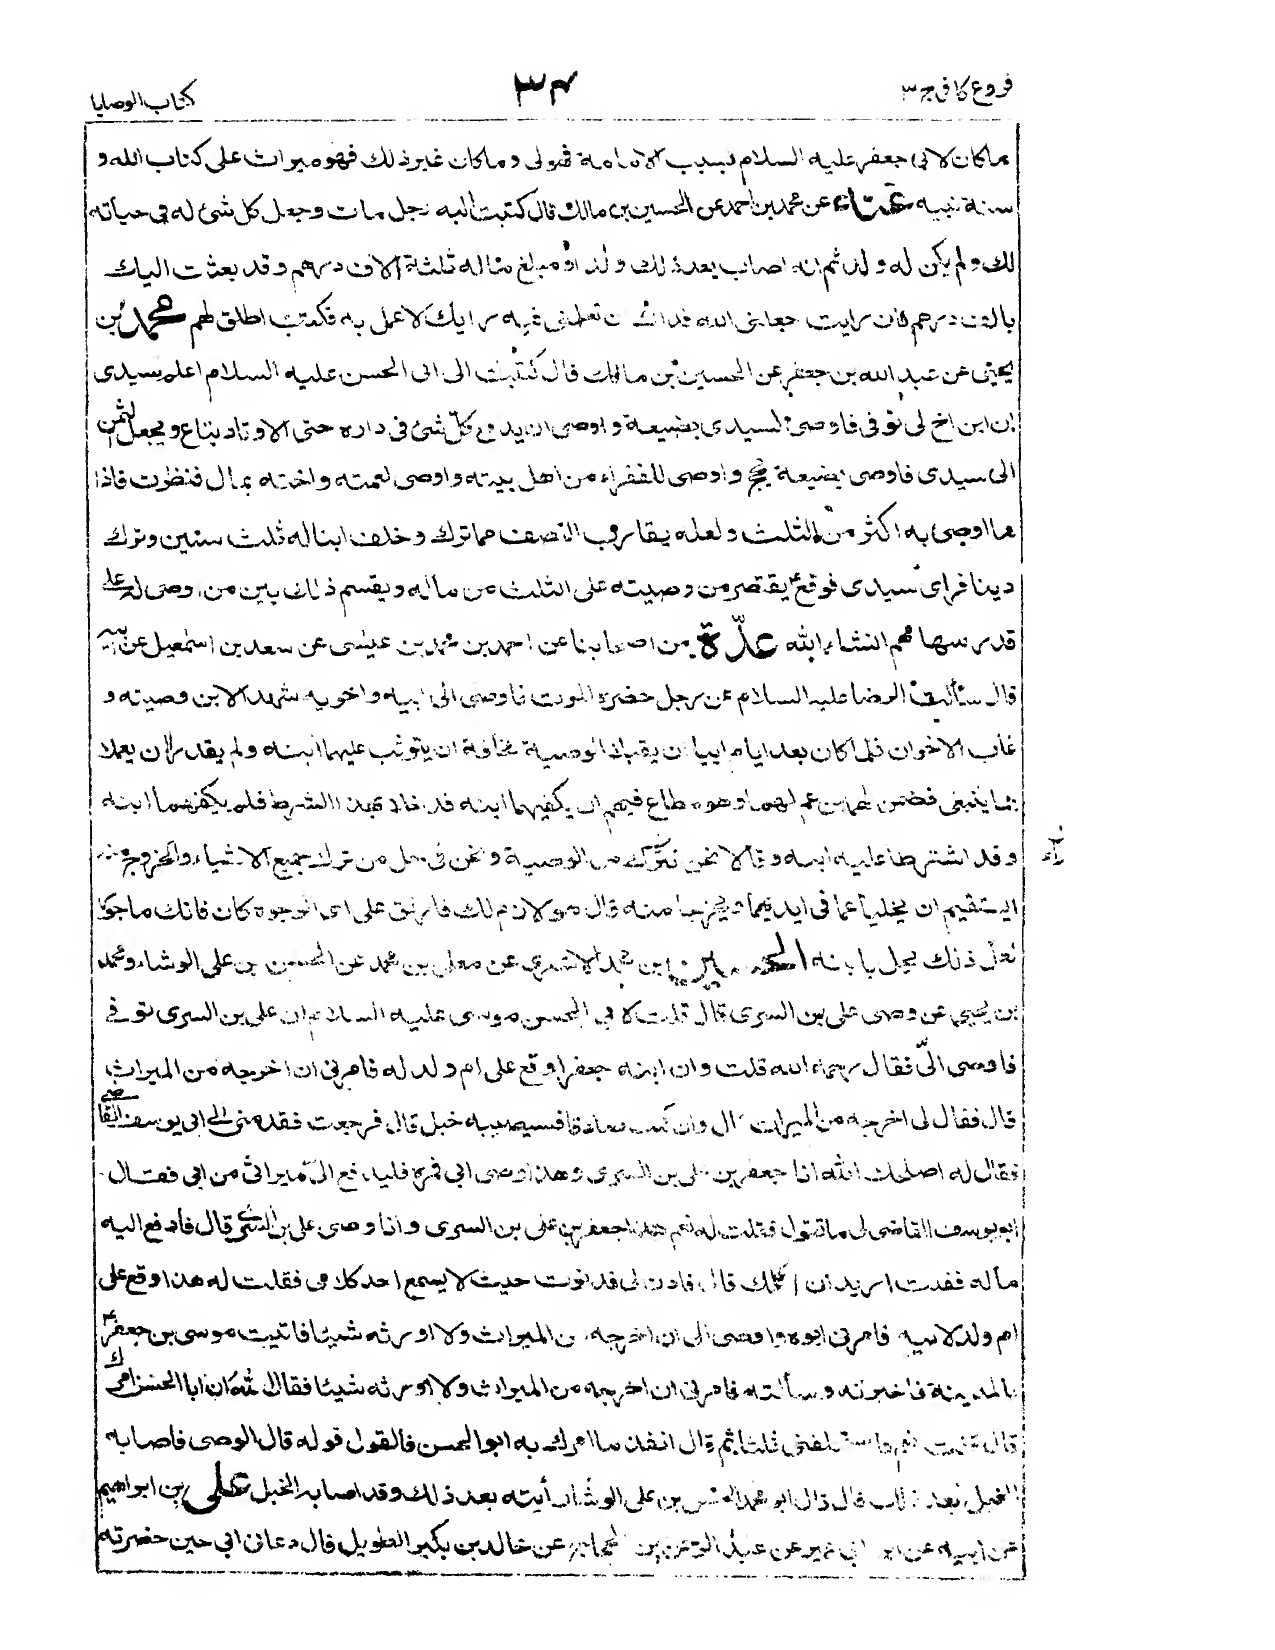 فروع کافی ج ۳
۳۴
کتاب الوصایا
ما کان لابی جعفر علیه السلام بسبب الامامة فهو لی و ما کان غیر ذلک فهو میراث علی کتاب الله و
سنة نبیه عن محمد بن احمد عن الحسین بن مالک قال کتبت الیه رجل مات و جعل کل شئ له فی حیاته
لک و لم یکن له ولد ثم انه اصاب بعد ذلک ولدا و مبلغ ماله ثلثة الاف درهم و قد بعثت الیک
بالف درهم فان رایت جعلنی الله فداک ان تعلمنی فیه رایک لاعمل به فکتب اطلق لهم محمد بن
یحیی عن عبد الله بن جعفر عن الحسین بن مالک قال کتبت الی ابی الحسن علیه السلام اعلم سیدی
ان ابن اخ لی توفی فاوصی لسیدی بضیعة و اوصی ان یدفع کل شئ فی داره حتی الاوتاد تباع و یجعل الثمن
الی سیدی فاوصی بضیعة و اوصی للفقراء من اهل بیته و اوصی لعمته و اخته بمال فنظرت فاذا
ما اوصی به اکثر من الثلث و لعله یقارب النصف مما ترک و خلف ابنا له ثلث سنین و ترک
دینا فرای سیدی فوقع ع یقتصر من وصیته علی الثلث من ماله و یقسم ذلک بین من اوصی له علی
قدر سهامهم انشاء الله عدّة من اصحابنا عن احمد بن محمد بن عیسی عن سعد بن اسمعیل عن ابیه
قال سألت الرضا علیه السلام عن رجل حضره الموت فاوصی الی ابیه و اخویه شهد الابن وصیته و
غاب الاخوان فلما کان بعد ایام ابیا ان یقبلا الوصیة مخافة ان یتوثب علیهما ابنه و لم یقدرا ان یعملا
بما ینبغی فضمن لهما ابن عم لهما و هو مطاع فیهم ان یکفیهما ابنه فدخلا بهذا الشرط فلم یکفهما ابنه
و قد اشترطا علیه ابنه و قالا نحن نترک من الوصیة و نحن فی حل من ترک جمیع الاشیاء و الخروج منه
ایستقیم ان یخلیا عما فی ایدیهما و یخرجا منه قال هو لازم لک فارفق علی ای الوجوه کان فانک ماجور
لعل ذلک یحل بابنه الحسین بن محمد الاشعری عن معلی بن محمد عن الحسن بن علی الوشاء و محمد
بن یحیی عن وصی علی بن السری قال قلت لابی الحسن موسی علیه السلام ان علی بن السری توفی
فاوصی الیّ فقال رحمه الله قلت و ان ابنه جعفرا وقع علی ام ولد له فامرنی ان اخرجه من المیراث
قال فقال لی اخرجه من المیراث و ان کنت صادقا فسیصیبه خبل قال فرجعت فقدمنی الی ابی یوسف القاضی
فقال له اصلحک الله انا جعفر بن علی بن السری و هذا وصی ابی فمره فلیدفع الیّ میراثی من ابی فقال
ابو یوسف القاضی لی ما تقول فقلت له نعم هذا جعفر بن علی بن السری و انا وصی علی بن السری قال فادفع الیه
ماله فقلت ارید ان اکلمک قال فادن الی فدنوت حیث لا یسمع احد کلامی فقلت له هذا وقع علی
ام ولد لابیه فامرنی ابوه و اوصی الی ان اخرجه من المیراث و لا اورثه شیئا فاتیت موسی بن جعفر ع
بالمدینة فاخبرته و سألته فامرنی ان اخرجه من المیراث و لا اورثه شیئا فقال الله ان ابا الحسن امرک
قال قلت نعم فاستحلفنی ثلثا ثم قال انفذ ما امرک به ابو الحسن فالقول قوله قال الوصی فاصابه
الخبل بعد ذلک قال قال ابو محمد الحسن بن علی الوشاء رأیته بعد ذلک و قد اصابه الخبل علی بن ابراهیم
عن ابیه عن ابن ابی عمیر عن عبد الرحمن بن الحجاج عن خالد بن بکیر الطویل قال دعانی ابی حین حضرته